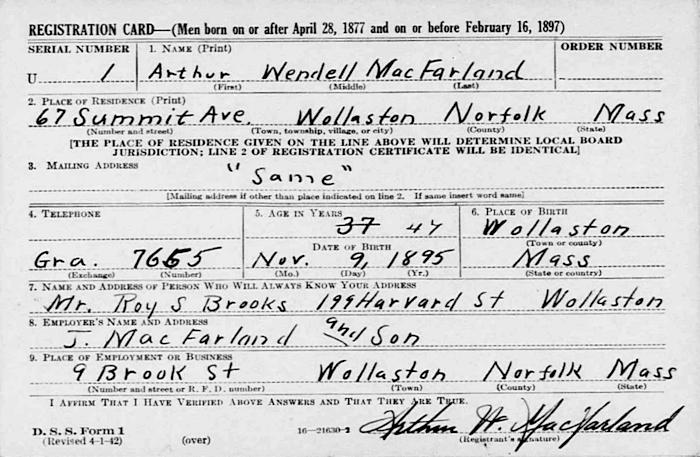 REGISTRATION CARD—(Men born on or after April 28, 1877 and on or before February 16, 1897)
SERIAL NUMBER 1. NAME (Print) ORDER NUMBER
U 1 Arthur Wendell MacFarland
(First) (Middle) (Last)
2. PLACE OF RESIDENCE (Print)
67 Summit Ave. Wollaston Norfolk Mass
(Number and street) (Town, township, village, or city) (County) (State)
[THE PLACE OF RESIDENCE GIVEN ON THE LINE ABOVE WILL DETERMINE LOCAL BOARD
JURISDICTION; LINE 2 OF REGISTRATION CERTIFICATE WILL BE IDENTICAL]
3. MAILING ADDRESS
"Same"
[Mailing address if other than place indicated on line 2. If same insert word same]
4. TELEPHONE 5. AGE IN YEARS 6. PLACE OF BIRTH
37 47 Wollaston
DATE OF BIRTH (Town or county)
Gra. 7655 Nov. 9, 1895 Mass
(Exchange) (Number) (Mo.) (Day) (Yr.) (State or country)
7. NAME AND ADDRESS OF PERSON WHO WILL ALWAYS KNOW YOUR ADDRESS
Mr. Roy S Brooks 199 Harvard St Wollaston
8. EMPLOYER'S NAME AND ADDRESS
J. MacFarland and Son
9. PLACE OF EMPLOYMENT OR BUSINESS
9 Brook St Wollaston Norfolk Mass
(Number and street or R. F. D. number) (Town) (County) (State)
I AFFIRM THAT I HAVE VERIFIED ABOVE ANSWERS AND THAT THEY ARE TRUE.
D. S. S. Form 1 16—21630-2 Arthur W. MacFarland
(Revised 4-1-42) (over) (Registrant's signature)